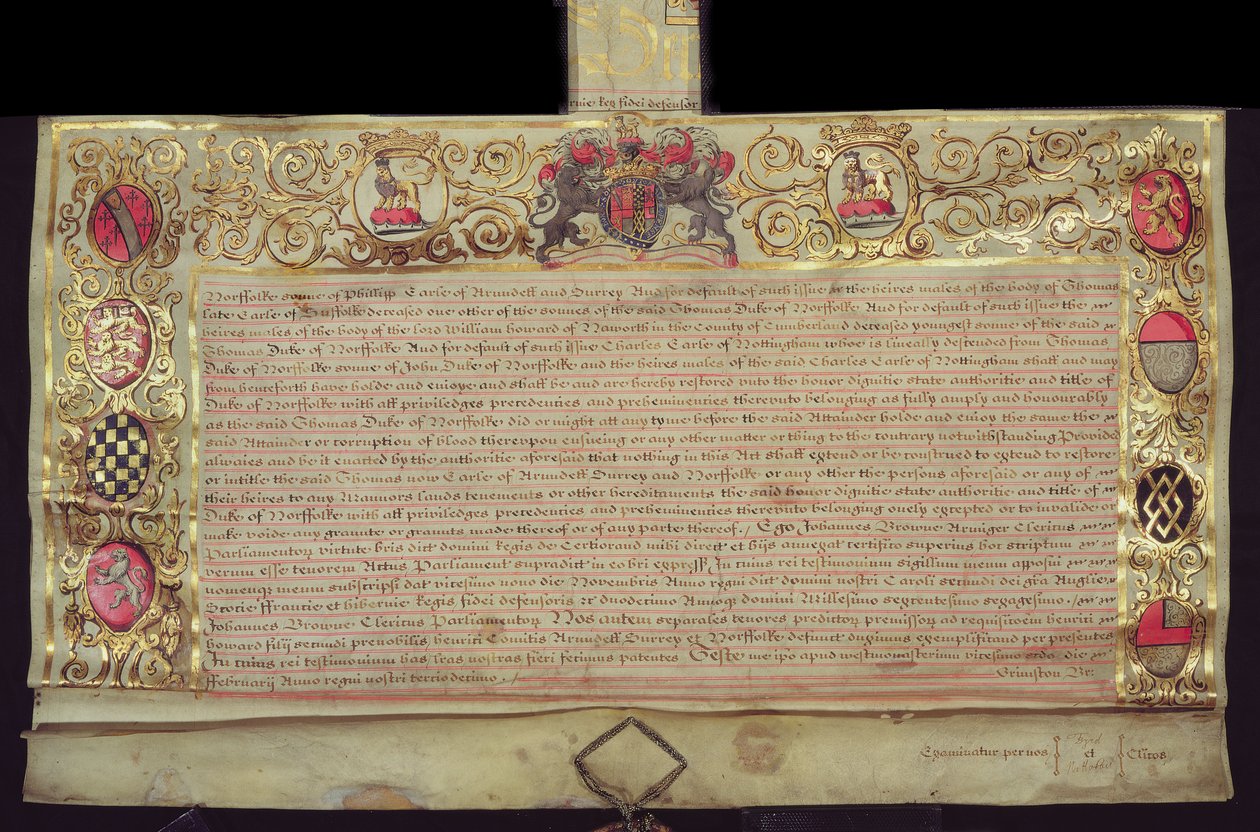 rnie Reg fidei defensor
Norffolke sonne of Phillipp Earle of Arundell and Surrey And for default of such issue the heires males of the body of Thomas
late Earle of Suffolke deceased one other of the sonnes of the said Thomas Duke of Norffolke And for default of such issue the
heires males of the body of the lord William Howard of Naworth in the County of Cumberland deceased youngest sonne of the said
Thomas Duke of Norffolke And for default of such issue Charles Earle of Nottingham whoe is lineally descended from Thomas
Duke of Norffolke sonne of John Duke of Norffolke and the heires males of the said Charles Earle of Nottingham shall and may
from henceforth have holde and enioye and shall be and are hereby restored vnto the honor dignitie state authoritie and title of
Duke of Norffolke with all priviledges precedencies and preheminencies therevnto belonging as fully amply and honourably
as the said Thomas Duke of Norffolke did or might att any tyme before the said Attainder holde and enioy the same the
said Attainder or corruption of blood therevpon ensueing or any other matter or thing to the contrary notwithstanding Provided
alwaies and be it enacted by the authoritie aforesaid that nothing in this Act shall extend or be construed to extend to restore
or intitle the said Thomas now Earle of Arundell Surrey and Norffolke or any other the persons aforesaid or any of
their heires to any Mannors lands tenements or other hereditaments the said honor dignitie state authoritie and title of
Duke of Norffolke with all priviledges precedencies and preheminencies therevnto belonging onely excepted or to invalide or
make voide any graunte or graunts made thereof or of any parte thereof./ Ego Johannes Browne Armiger Clericus
Parliamentorum virtute bris dict domini Regis de Certiorand mihi direct et hijs annexat certifico superius hoc scriptum
verum esse tenorem Actus Parliamenti supradict in eo bri express In cuius rei testimonium sigillum meum apposui
nomenque meum subscripsi dat vicesimo nono die Novembris Anno regni dict domini nostri Caroli secundi dei gra Anglie
Scotie ffrancie et hibernie Regis fidei defensoris &c duodecimo Annoque domini Millesimo sexcentesimo sexagesimo./
Johannes Browne Clericus Parliamentor Nos autem separales tenores predictor premissor ad requisitcoem henrici
howard filij secundi prenobilis henrici Comitis Arundell Surrey et Norffolke defunct duximus exemplificand per presentes
In cuius rei testimonium has lras nostras fieri fecimus patentes Teste me ipo apud westmonasterium vicesimo scdo die
ffebruarij Anno regni nostri terciodecimo./ Grimston Br:
Examinatur per nos et Clicos